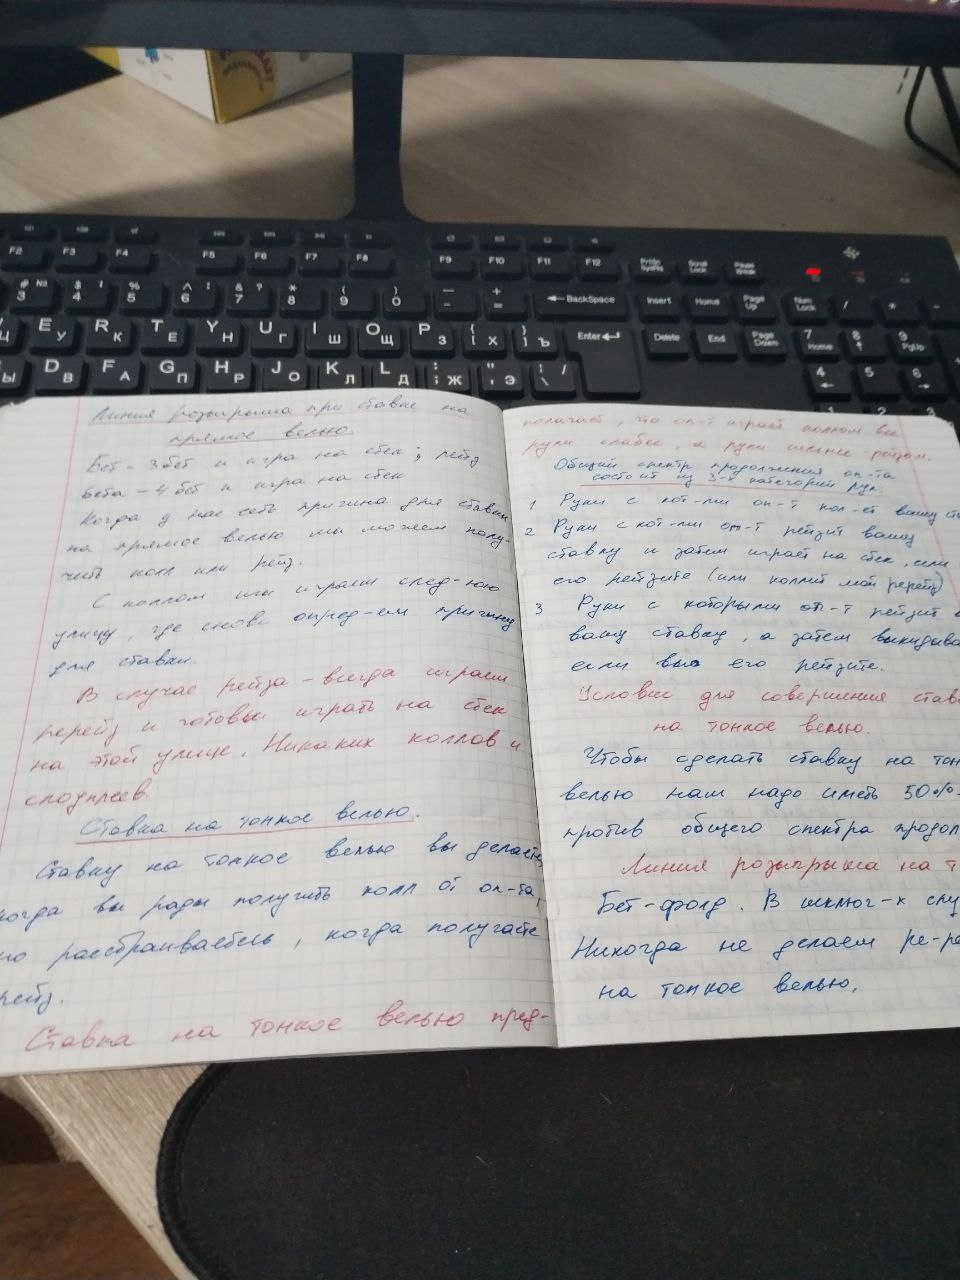 Линия розыгрыша при ставке на
прямое велью.
Бет - 3бет и игра на стек; рейз
бета - 4бет и игра на стек
Когда у нас есть причина для ставки
на прямое велью мы можем полу-
чить колл или рейз.
С коллом мы играем след-юю
улицу, где снова опред-ем причину
для ставки.
В случае рейза - всегда играем
ререйз и готовы играть на стек
на этой улице. Никаких коллов и
слоуплеев.
Ставка на тонкое велью.
Ставку на тонкое велью вы делаете,
когда вы рады получить колл от оп-та,
но расстраиваетесь, когда получаете
рейз.
Ставка на тонкое велью пред-
полагает, что оп-т играет коллом все
руки слабее, а руки сильнее - рейзом.
Общий спектр продолжения оп-та
состоит из 3-х категорий рук:
1 Руки с кот-ми оп-т кол-ет вашу
2 Руки с кот-ми оп-т рейзит вашу
ставку и затем играет на стек, если
его рейзите (или коллит мой ререйз)
3 Руки с которыми оп-т рейзит
вашу ставку, а затем выкидыва
если вы его рейзите.
Условие для совершения став
на тонкое велью.
Чтобы сделать ставку на тон
велью нам надо иметь 50%
против общего спектра продол
Линия розыгрыша на т
Бет-фолд. В исключ-х слу
Никогда не делаем ре-ре
на тонкое велью.
F2 F3 F4 F5 F6 F7 F8 F9 F10 F11 F12 PrtSc SysRq Scroll Lock Pause Break
# № 3 $ ; 4 % : 5 ^ 6 & ? 7 * 8 ( 9 ) 0 - + = BackSpace Insert Home Page Up Num Lock / * -
Ц E У R К T Е Y Н U Г I Ш O Щ P З { [ Х } ] Ъ Enter Delete End Page Down 7 Home 8 9 PgUp
Ы D В F А G П H Р J О K Л L Д : ; Ж " ' Э | \ / 4 5 6
1 2 3